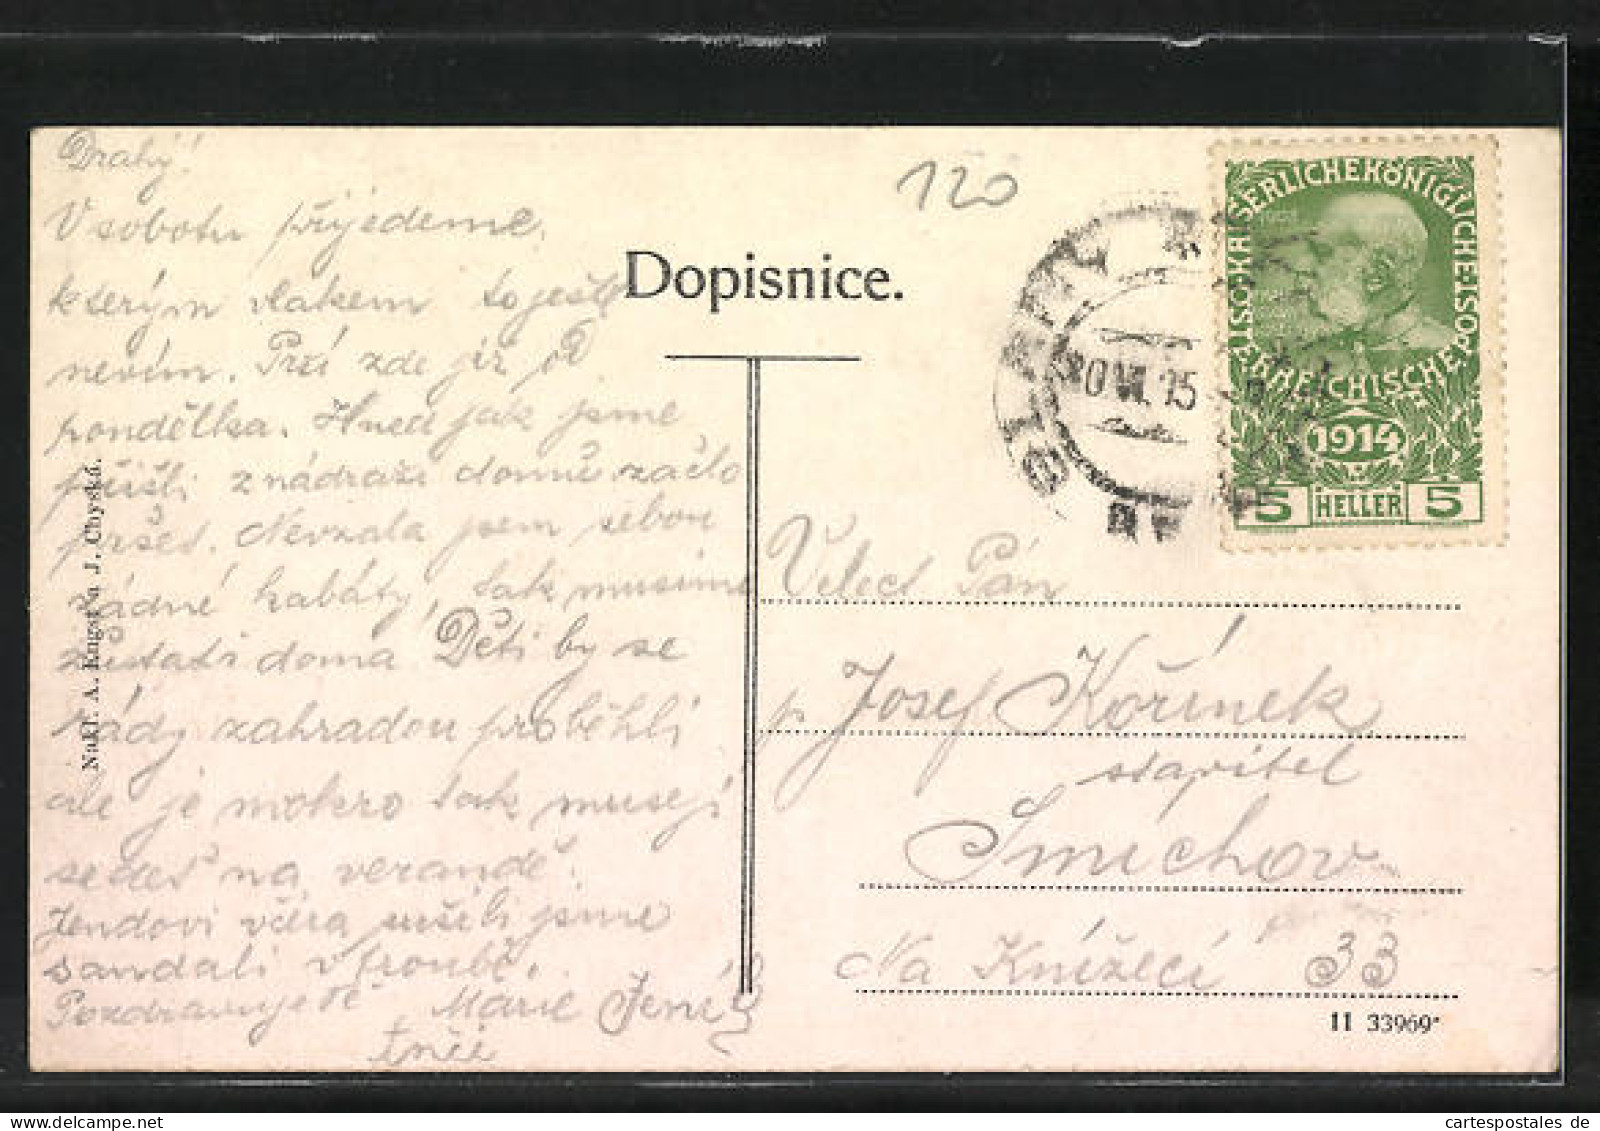 Drahý!
V sobotu přijedeme,
kterým vlakem to ještě
nevím. Prší zde již od
pondělka. Hned jak jsme
přišli z nádraží domů začlo
pršet. Nevzala jsem sebou
žádné kabáty, tak musíme
zůstati doma Děti by se
rády zahradou proběhli
ale je mokro tak musejí
sedět na verandě.
Jendovi včera jsme
sandali v
Pozdravuje tě Marie
Nakl. A. J. Chyská.
120
Dopisnice.
KAISERLICHEKÖNIGLICHE
ÖSTERREICHISCHE POST
1914
5 HELLER 5
VI. 15
Velect Pán
p. Josef Kořínek
stavitel
Smíchov
Na Knížecí 33
11 33969*
cartespostales de